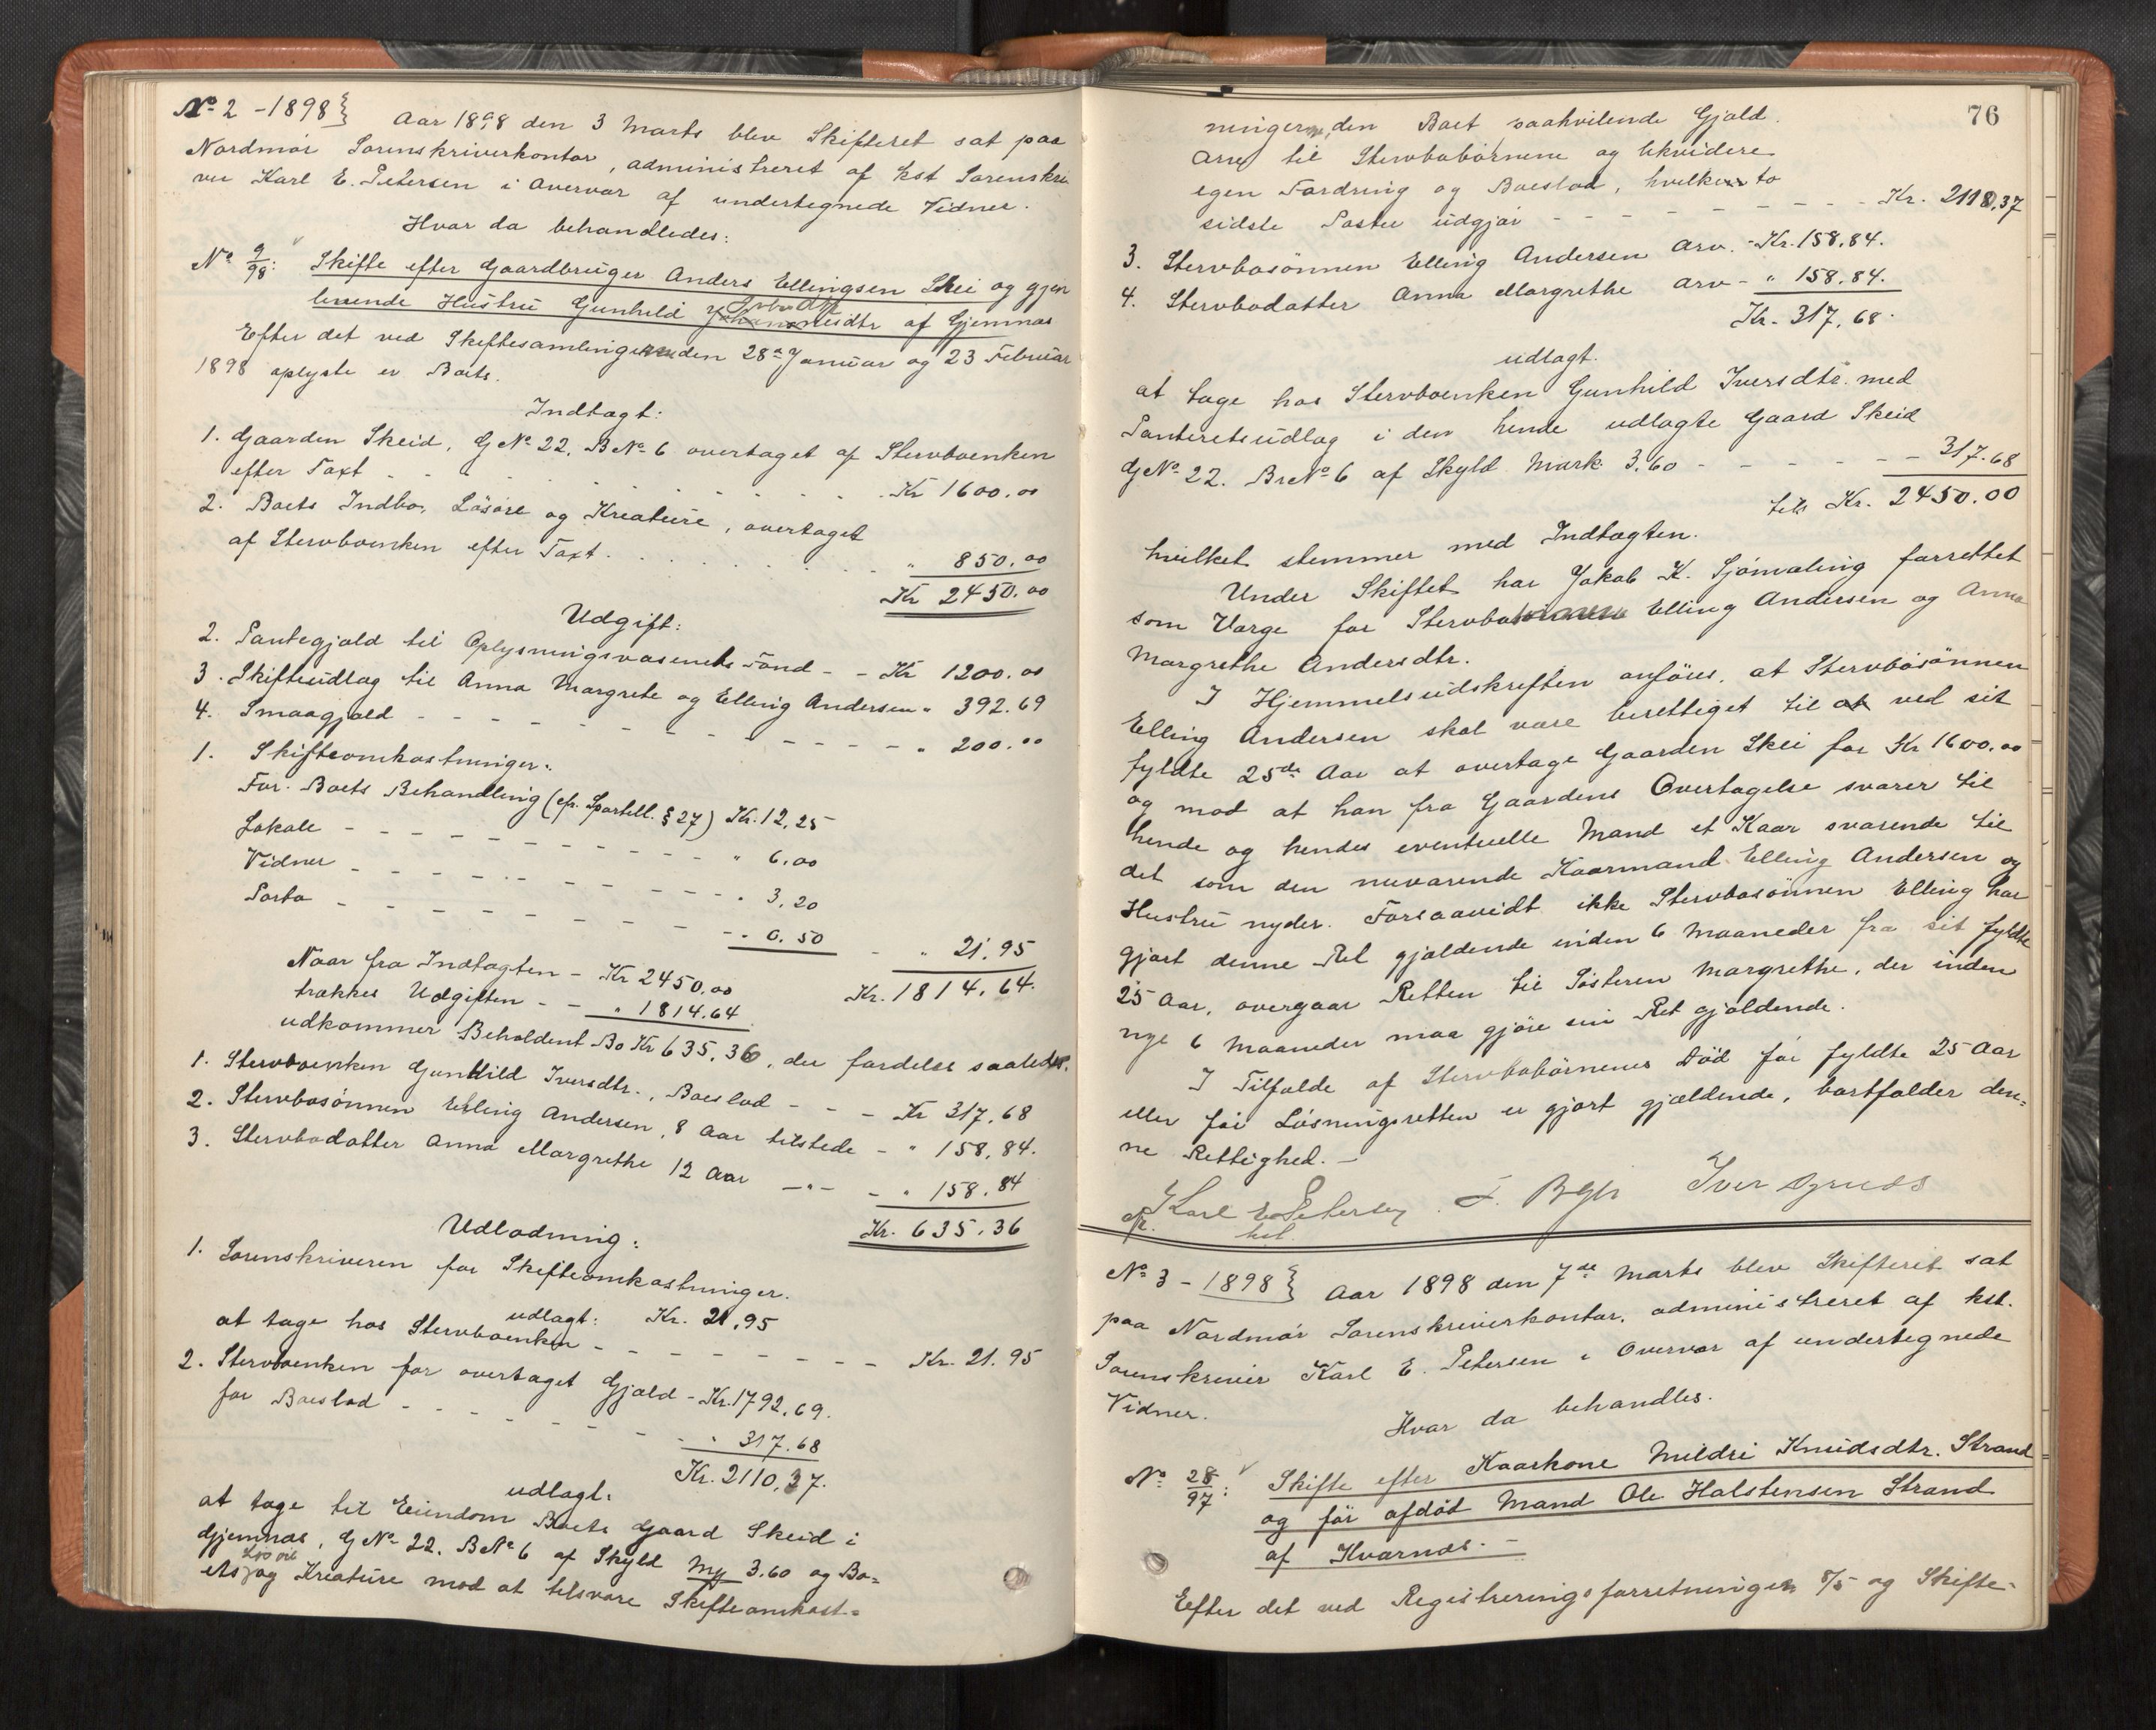 No 2 - 1898} Aar 1898 den 3 Marts blev Skifteret sat paa
Nordmør Sorenskriverkontor, administreret af kst Sorenskri
ver Karl E. Petersen i Overvær af undertegnede Vidner.
Hvor da behandledes:
No 9/98: Skifte efter Gaardbruger Anders Ellingsen Skei og gjen
levende Hustru Gunhild af Gjemnæs
Efter det ved Skiftesamlingen den 28de Januar og 23 Februar
1898 oplyste er Boets.
Indtægt:
1. Gaarden Skeid, G No 22, B No 6 overtaget af Stervboenken
efter Taxt - - - Kr 1600.00
2. Boets Indbo, Løsøre og Kreature, overtaget
af Stervboenken efter Taxt . . . " 850.00
Kr 2450.00
Udgift:
2. Pantegjæld til Oplysningsvæsenets Fond - - Kr 1200.00
3. Skifteudlæg til Anna Margrete og Elling Andersen " 392.69
4. Smaagjæld - - - " 200.00
1. Skifteomkostninger:
For Boets Behandling (cfr. Sportell. § 27) Kr. 12.25
Lokale - - - " 6.00
Vidner - - - " 3.20
Porto - - - " 0.50 - " 21.95
Kr. 1814.64.
Naar fra Indtægten - Kr 2450.00
trækkes Udgiften - - " 1814.64
udkommer Beholdent Bo Kr 635.36, der fordeles saaledes.
1. Stervboenken Gunhild Iversdtr., Boeslod - - - Kr 317.68
2. Stervbosønnen Elling Andersen, 8 Aar tilstede - " 158.84.
3. Stervbodatter Anna Margrethe 12 Aar —"— - " 158.84
Kr. 635.36
Udlodning:
1. Sorenskriveren for Skifteomkostninger.
Kr. 21.95
udlagt:
at tage hos Stervboenken - - - Kr. 21.95
2. Stervboenken for overtaget Gjæld - Kr. 1792.69.
for Boeslod - - - " 317.68
Kr. 2110.37.
udlagt:
at tage til Eiendom Boets Gaard Skeid i
Gjemnæs, G No 22. B No 6 af Skyld My 3.60 og Bo=
ets Løsøre og Kreature mod at tilsvare Skifteomkost=
76
ningerne, den Boet paahvilende Gjæld.
Arv til Stervbobørnene og likvidere
egen Fordring og Boeslod, hvilke to
sidste Poster udgjør - - - Kr. 2110,37
3. Stervbosønnen Elling Andersen Arv. - Kr. 158.84.
4. Stervbodatter Anna Margrethe Arv - " 158.84.
Kr. 317,68.
udlagt.
at tage hos Stervboenken Gunhild Iversdtr. med
Panteretsudlæg i den hende udlagte Gaard Skeid
G No 22. Br No 6 af Skyld Mark 3.60 - - - 317.68
tils Kr. 2450.00
hvilket stemmer med Indtægten.
Under Skiftet har Jakob K. Sjømæling forrettet
som Værge for Elling Andersen og Anna
Margrethe Andersdtr.
I Hjemmelsudskriften anføres, at Stervbosønnen
Elling Andersen skal være berettiget til at ved sit
fyldte 25de Aar at overtage Gaarden Skei for Kr 1600.00
og mod at han fra Gaardens Overtagelse svarer til
hende og hendes eventuelle Mand et Kaar svarende til
det som den nuværende Kaarmand Elling Andersen og
Hustru nyder. Forsaavidt ikke Stervbosønnen Elling har
gjort denne Ret gjældende inden 6 Maaneder fra sit fyldte
25 Aar, overgaar Retten til Søsteren Margrethe, der inden
nye 6 Maaneder maa gjøre sin Ret gjældende.
I Tilfælde af Stervbobørnenes Død før fyldte 25 Aar
eller før Løsningsretten er gjort gjældende, bortfalder den=
ne Rettighed. —
Karl E Petersen Iver
kst.
No 3 - 1898} Aar 1898 den 7de Marts blev Skifteret sat
paa Nordmør Sorenskriverkontor, administreret af kst.
Sorenskriver Karl E. Petersen i Overvær af undertegnede
Vidner.
Hvor da behandles.
No 28/97: Skifte efter Kaarkone Mildri Knudsdtr. Strand
og før afdød Mand Ole Halstensen Strand
af Kvernæs. —
Efter det ved Registreringsforretningen 8/5 og Skifte-